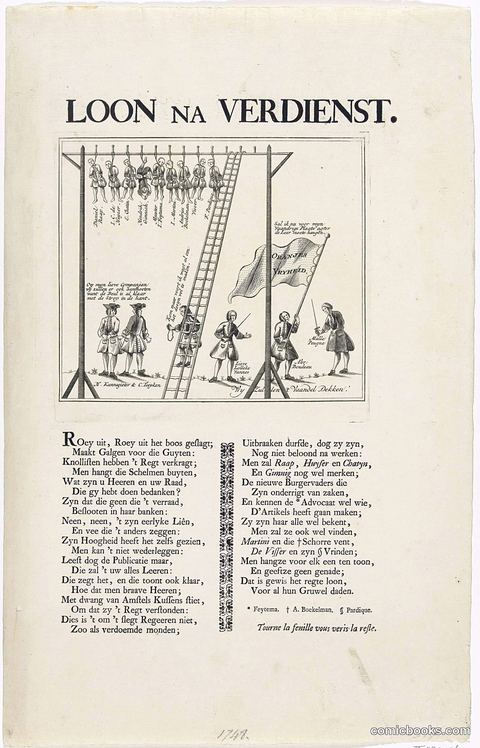 LOON NA VERDIENST.
Sal ik nu voor myn
ORANJES
VRYHEID.
Op myn lieve Compagnjens
N. Kannegieter & C. Leepken
Roey uit, Roey uit het boos geslagt;
Maakt Galgen voor die Guyten:
Knollisten hebben 't Regt verkragt;
Men hangt die Schelmen buyten,
Wat zyn u Heeren en uw Raad,
Die gy hebt doen bedanken?
Zyn dat die geen die 't verraad,
Beslooten in haar banken:
Neen, neen, 't zyn eerlyke Liên,
En vee die 't anders zeggen:
Zyn Hoogheid heeft het zelfs gezien,
Men kan 't niet wederleggen:
Leest dog de Publicatie maar,
Die zal 't uw alles Leeren:
Die zegt het, en die toont ook klaar,
Hoe dat men braave Heeren;
Met dwang van Amstels Kussens stiet,
Om dat zy 't Regt verstonden:
Dies is 't om 't slegt Regeeren niet,
Zoo als verdoemde monden;
Uitbraaken durfde, dog zy zyn,
Nog niet beloond na werken:
Men zal Raap, Huyser en Chatyn,
En Gimnig nog wel merken;
De nieuwe Burgervaders die
Zyn onderrigt van zaken,
En kennen de * Advocaat wel wie,
D'Artikels heeft gaan maken;
Zy zyn haar alle wel bekent,
Men zal ze ook wel vinden,
Martini en die † Schorre vent,
De Visser en zyn § Vrinden;
Men hangze voor elk een ten toon,
En geefize geen genade;
Dat is gewis het regte loon,
Voor al hun Gruwel daden.
* Feytema. † A. Boekelman. § Pardique.
Tourne la feuille vous veris la reste.
1748.
comicbooks.com